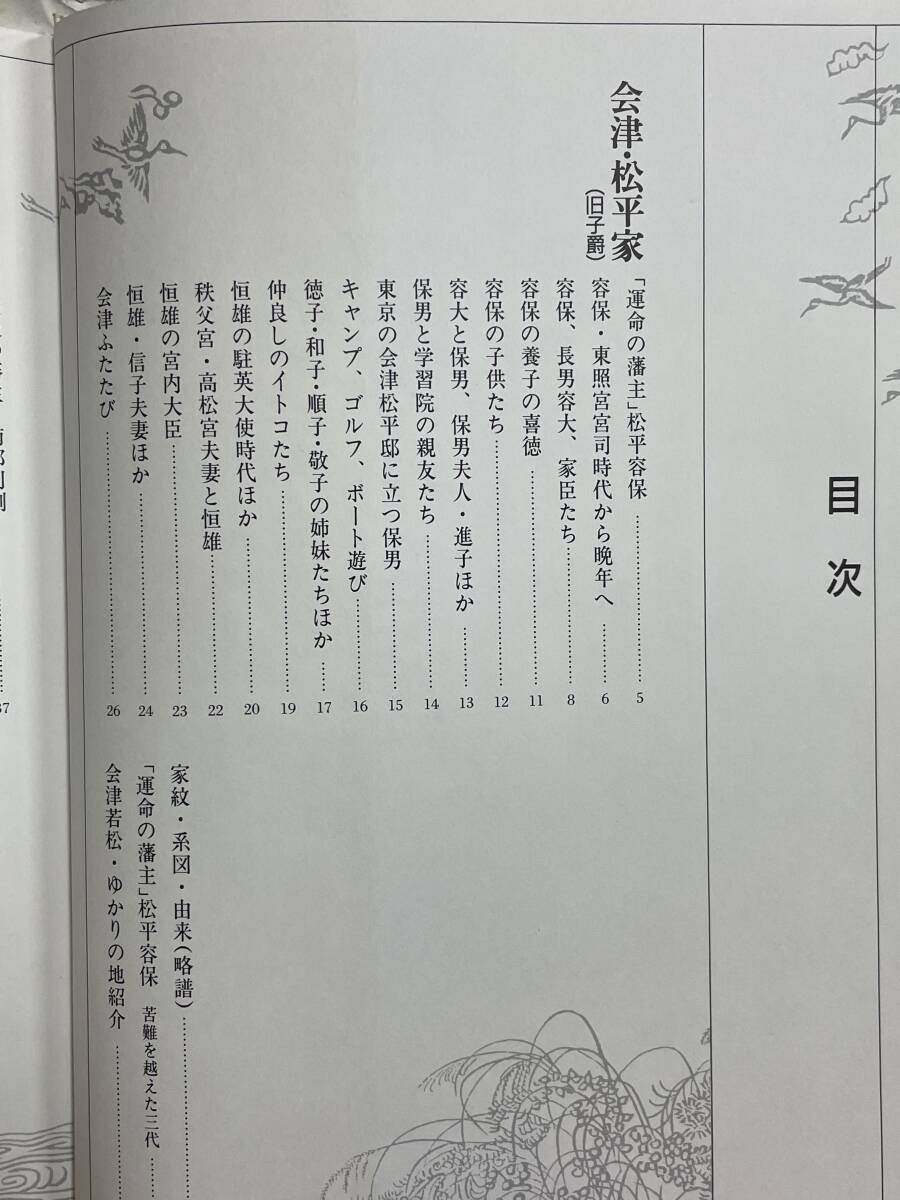 目次
会津・松平家
(旧子爵)
「運命の藩主」松平容保 …… 5
容保・東照宮宮司時代から晩年へ …… 6
容保、長男容大、家臣たち …… 8
容保の養子の喜徳 …… 11
容保の子供たち …… 12
容大と保男、保男夫人・進子ほか …… 13
保男と学習院の親友たち …… 14
東京の会津松平邸に立つ保男 …… 15
キャンプ、ゴルフ、ボート遊び …… 16
徳子・和子・順子・敬子の姉妹たちほか …… 17
仲良しのイトコたち …… 19
恒雄の駐英大使時代ほか …… 20
秩父宮・高松宮夫妻と恒雄 …… 22
恒雄の宮内大臣 …… 23
恒雄・信子夫妻ほか …… 24
会津ふたたび …… 26
家紋・系図・由来(略譜) ……
「運命の藩主」松平容保 苦難を越えた三代 ……
会津若松・ゆかりの地紹介 ……
37